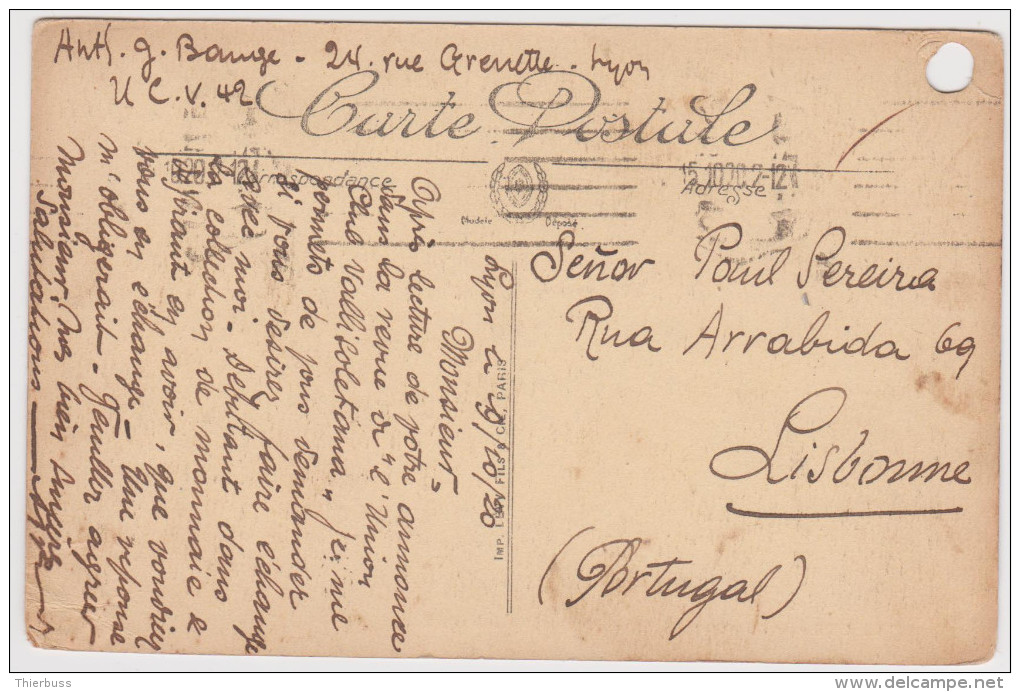 Anth. J. Bauge - 24. rue Grenette - Lyon
U C. V. 42
Carte Postale
Correspondance
Adresse
15.10.20
Modèle Déposé
Lyon le 9/10/20
Monsieur =
Après lecture de votre annonce
dans la revue de "l'Union
Club Vallisoletana" je me
permets de vous demander
si vous désirez faire échange
avec moi - Débutant dans
la collection de monnaie &
désirant en avoir, que voudriez
vous en échange = Une réponse
m'obligerait - Veuillez agréer
Monsieur mes bien sincères
Salutations
Señor Paul Pereira
Rua Arrabida 69
Lisbonne
(Portugal)
IMP. LEVY FILS & CIE, PARIS
Thierbuss
www.delcampe.net